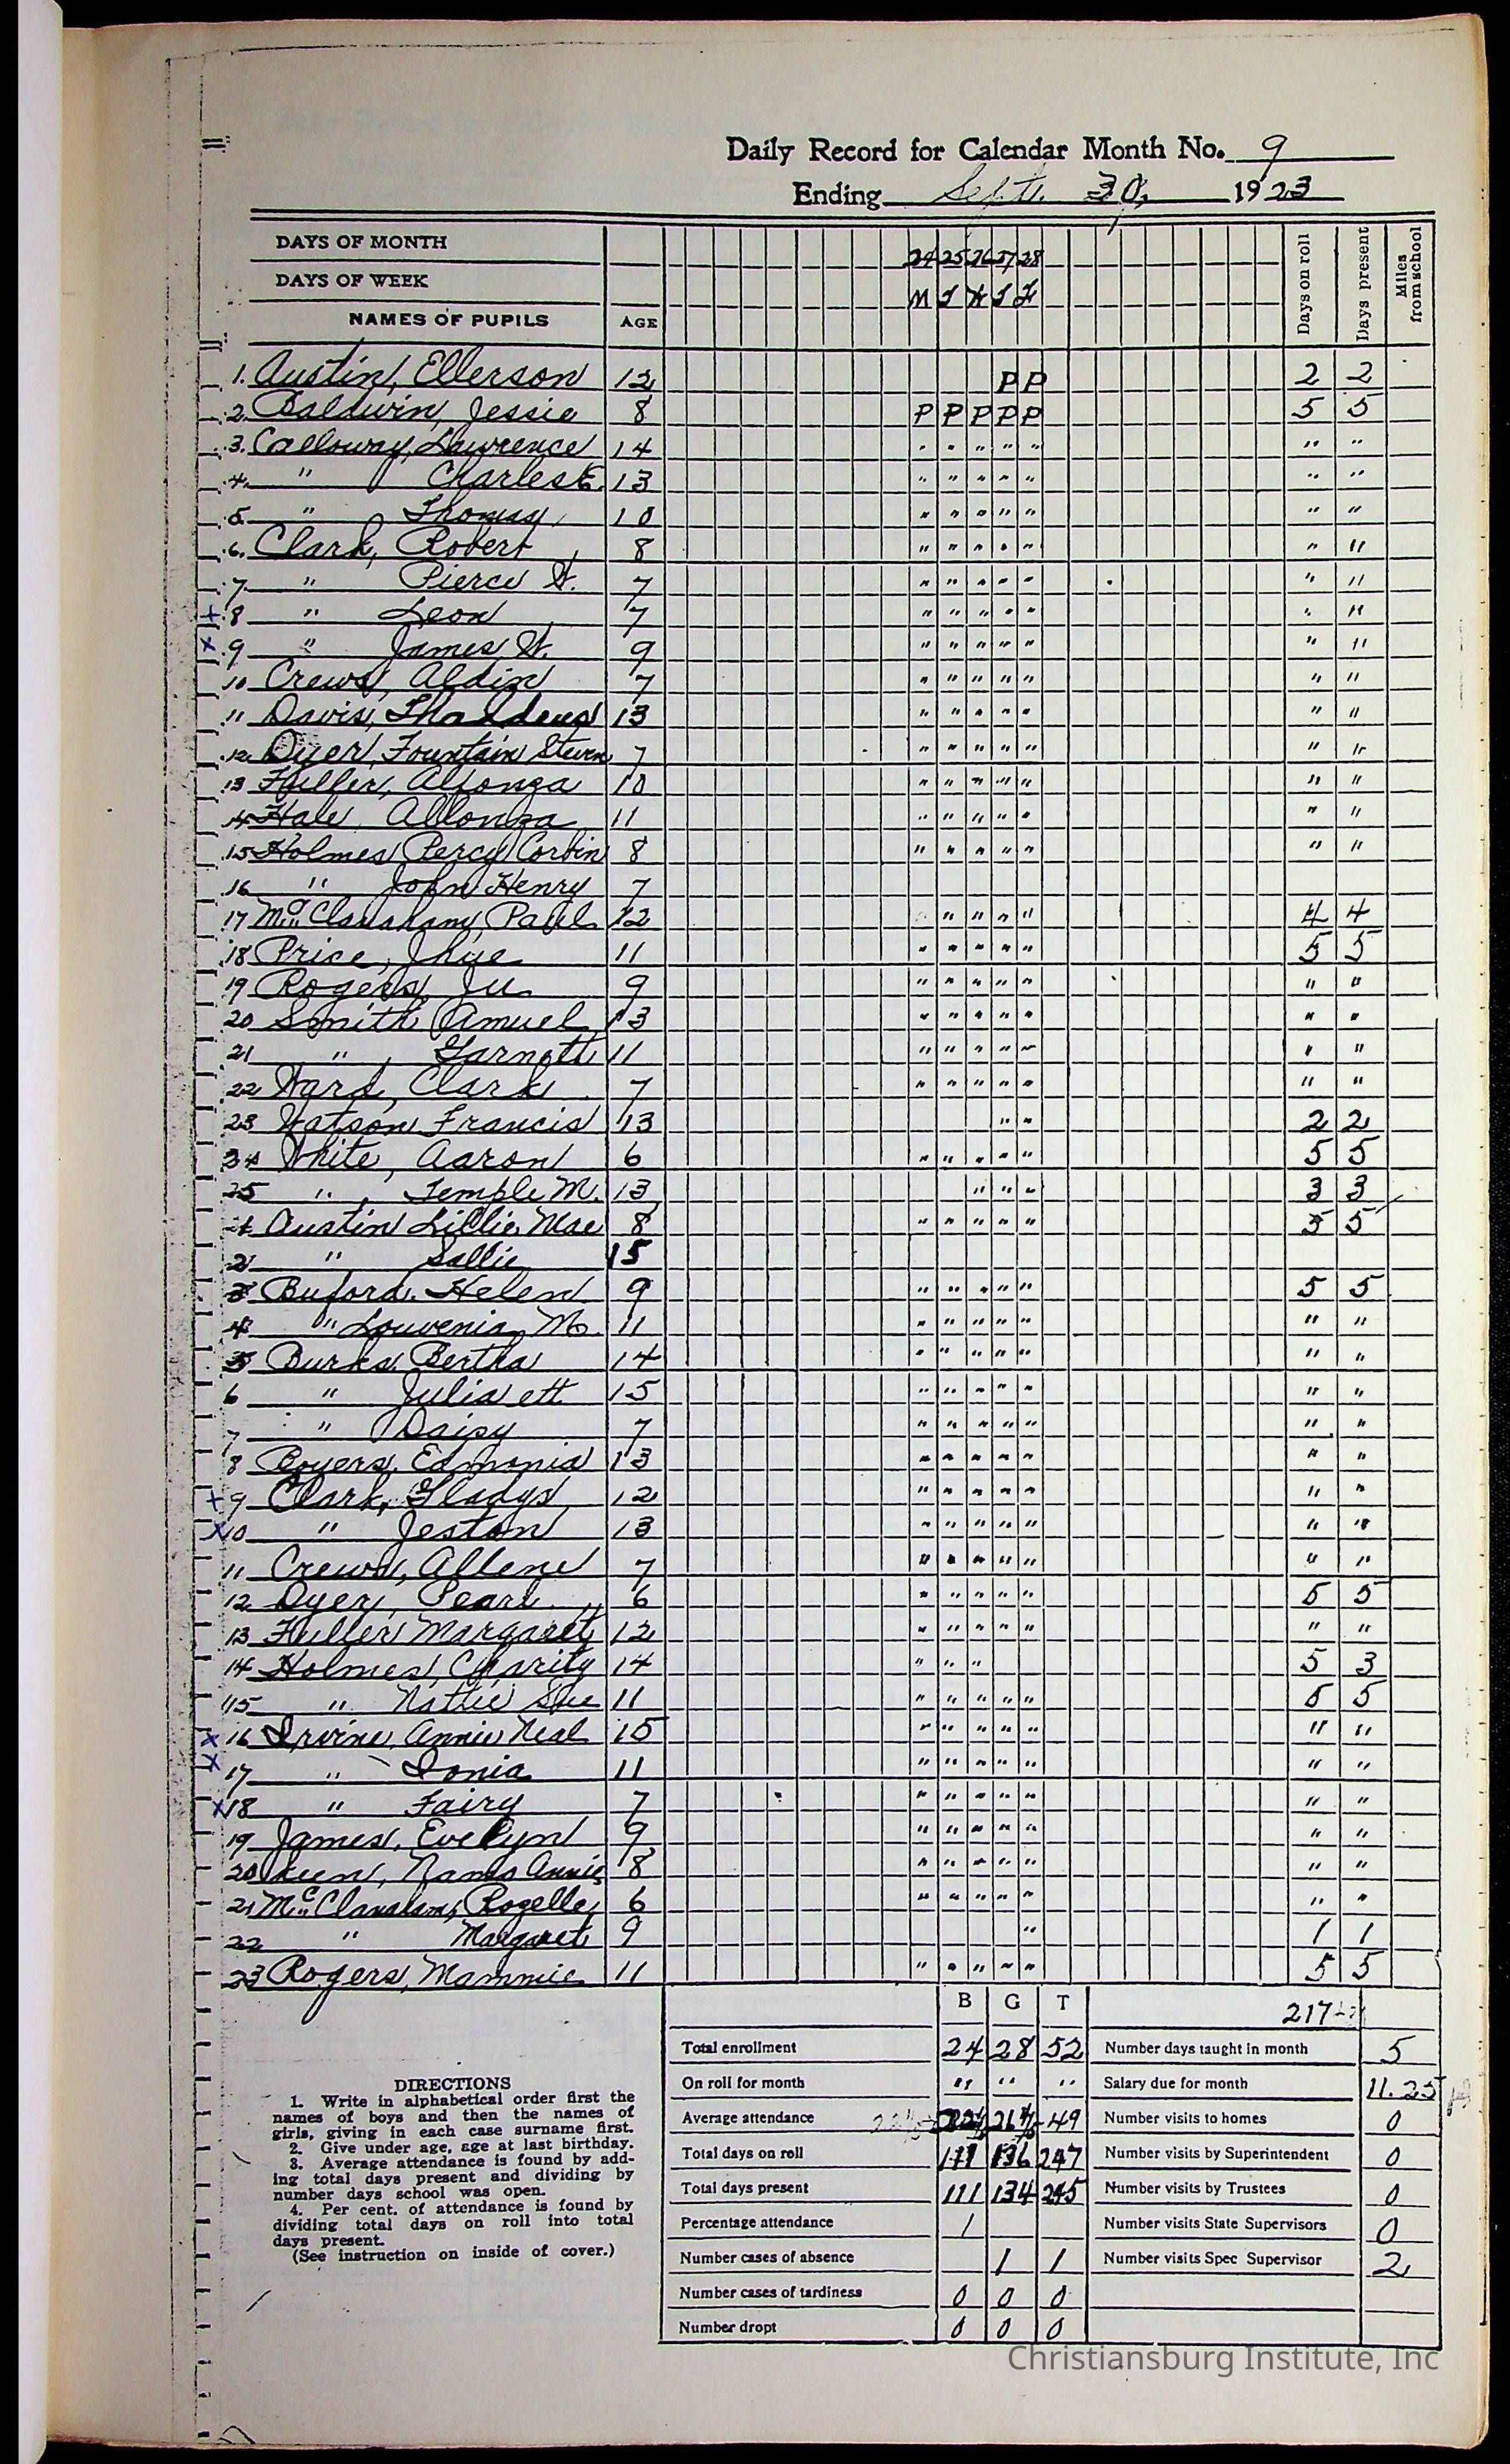 Daily Record for Calendar Month No. 9
Ending Sept. 30, 1923
DAYS OF MONTH 24 25 26 27 28
DAYS OF WEEK M T W T F
NAMES OF PUPILS AGE Days on roll Days present Miles from school
1. Austin, Ellerson 12 P P 2 2
2. Baldwin, Jessie 8 P P P P P 5 5
3. Calloway, Lawrence 14 " " " " " " "
4. " Charles E. 13 " " " " " " "
5. " Thomas 10 " " " " " " "
6. Clark, Robert 8 " " " " " " "
7. " Pierce W. 7 " " " " " " "
+ 8 " Leon 7 " " " " " " "
x 9 " James W. 9 " " " " " " "
10 Crews, Aldin 7 " " " " " " "
11 Davis, Thaddeus 13 " " " " " " "
12. Dyer, Fountain Steven 7 " " " " " " "
13 Fuller, Alfonza 10 " " " " " " "
14 Hale, Allonza 11 " " " " " " "
15 Holmes, Percy Corbin 8 " " " " " " "
16 " John Henry 7
17 McClanahan, Paul 12 " " " " 4 4
18 Price, 11 " " " " " 5 5
19 Rogers, Ju 9 " " " " " " "
20 Smith, Amuel 13 " " " " " " "
21 " Garnett 11 " " " " " " "
22 Ward, Clark 7 " " " " " " "
23 Watson, Francis 13 " " 2 2
24 White, Aaron 6 " " " " " 5 5
25 " Temple M. 13 " " " 3 3
1 Austin Lillie Mae 8 " " " " " 5 5
2 " Sallie 15
3 Buford, Helen 9 " " " " " 5 5
4 " Louvenia M. 11 " " " " " " "
5 Burks, Bertha 14 " " " " " " "
6 " Julia ett 15 " " " " " " "
7 " Daisy 7 " " " " " " "
8 Boyers, Edmonia 13 " " " " " " "
+ 9 Clark, Gladys 12 " " " " " " "
x 10 " Jeston 13 " " " " " " "
11 Crews, Allene 7 " " " " " " "
12 Dyer, Pearl 6 " " " " " 5 5
13 Fuller Margaret 12 " " " " " " "
14 Holmes, Charity 14 " " " 5 3
15 " Nattie Sue 11 " " " " " 5 5
x 16 Irvine, Annie Neal 15 " " " " " " "
x 17 " Ionia 11 " " " " " " "
x 18 " Fairy 7 " " " " " " "
19 James, Evelyn 9 " " " " " " "
20 Annie 8 " " " " " " "
21 McClanahan, Rozelle 6 " " " " " " "
22 " Margaret 9 " 1 1
23 Rogers, Mammie 11 " " " " " 5 5
B G T 217
Total enrollment 24 28 52 Number days taught in month 5
On roll for month " " " Salary due for month 11.25
Average attendance 49 Number visits to homes 0
Total days on roll 111 136 247 Number visits by Superintendent 0
Total days present 111 134 245 Number visits by Trustees 0
Percentage attendance 1 Number visits State Supervisors 0
Number cases of absence 1 1 Number visits Spec Supervisor 2
Number cases of tardiness 0 0 0
Number dropt 0 0 0
DIRECTIONS
1. Write in alphabetical order first the
names of boys and then the names of
girls, giving in each case surname first.
2. Give under age, age at last birthday.
3. Average attendance is found by add-
ing total days present and dividing by
number days school was open.
4. Per cent. of attendance is found by
dividing total days on roll into total
days present.
(See instruction on inside of cover.)
Christiansburg Institute, Inc